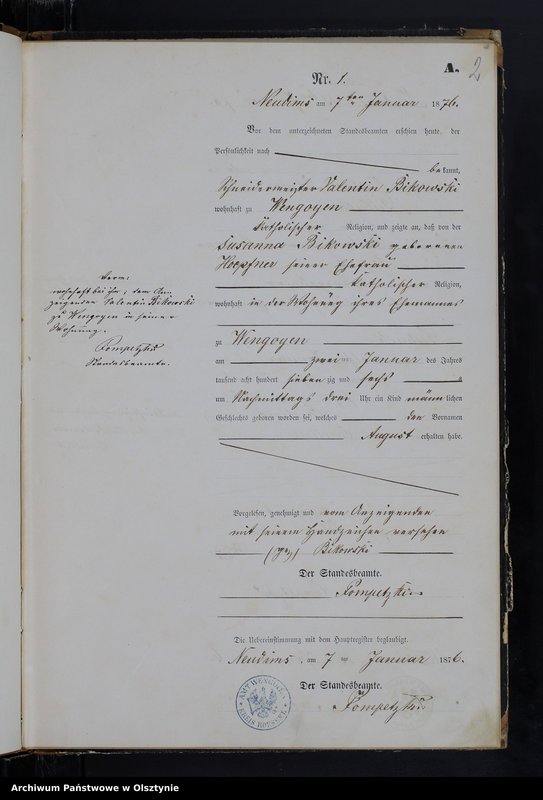 A.
2
Nr. 1.
Neudims am 7ten Januar 1876.
Vor dem unterzeichneten Standesbeamten erschien heute, der
Persönlichkeit nach
bekannt,
Schneidermeister Valentin Bikowski
wohnhaft zu Wengoyen
Katholischer Religion, und zeigte an, daß von der
Susanna Bikowski geborenen
Hoepfner seiner Ehefrau
Katholischer Religion,
wohnhaft in der Wohnung ihres Ehemannes
zu Wengoyen
am zweiten Januar des Jahres
tausend acht hundert siebenzig und sechs
um Nachmittags drei Uhr ein Kind männlichen
Geschlechts geboren worden sei, welches den Vornamen
August erhalten habe.
wohnhaft bei ihr, dem An-
zeigenden Valentin Bikowski
zu Wengoyen in seiner
Wohnung.
Pompetzki
Standesbeamte.
Vorgelesen, genehmigt und vom Anzeigenden
mit seinem Handzeichen versehen
Bikowski
Der Standesbeamte.
Pompetzki
Die Uebereinstimmung mit dem Hauptregister beglaubigt.
Neudims am 7ten Januar 1876.
Der Standesbeamte.
Pompetzki
AMT WENGOYEN
KREIS ROESSEL
Archiwum Państwowe w Olsztynie